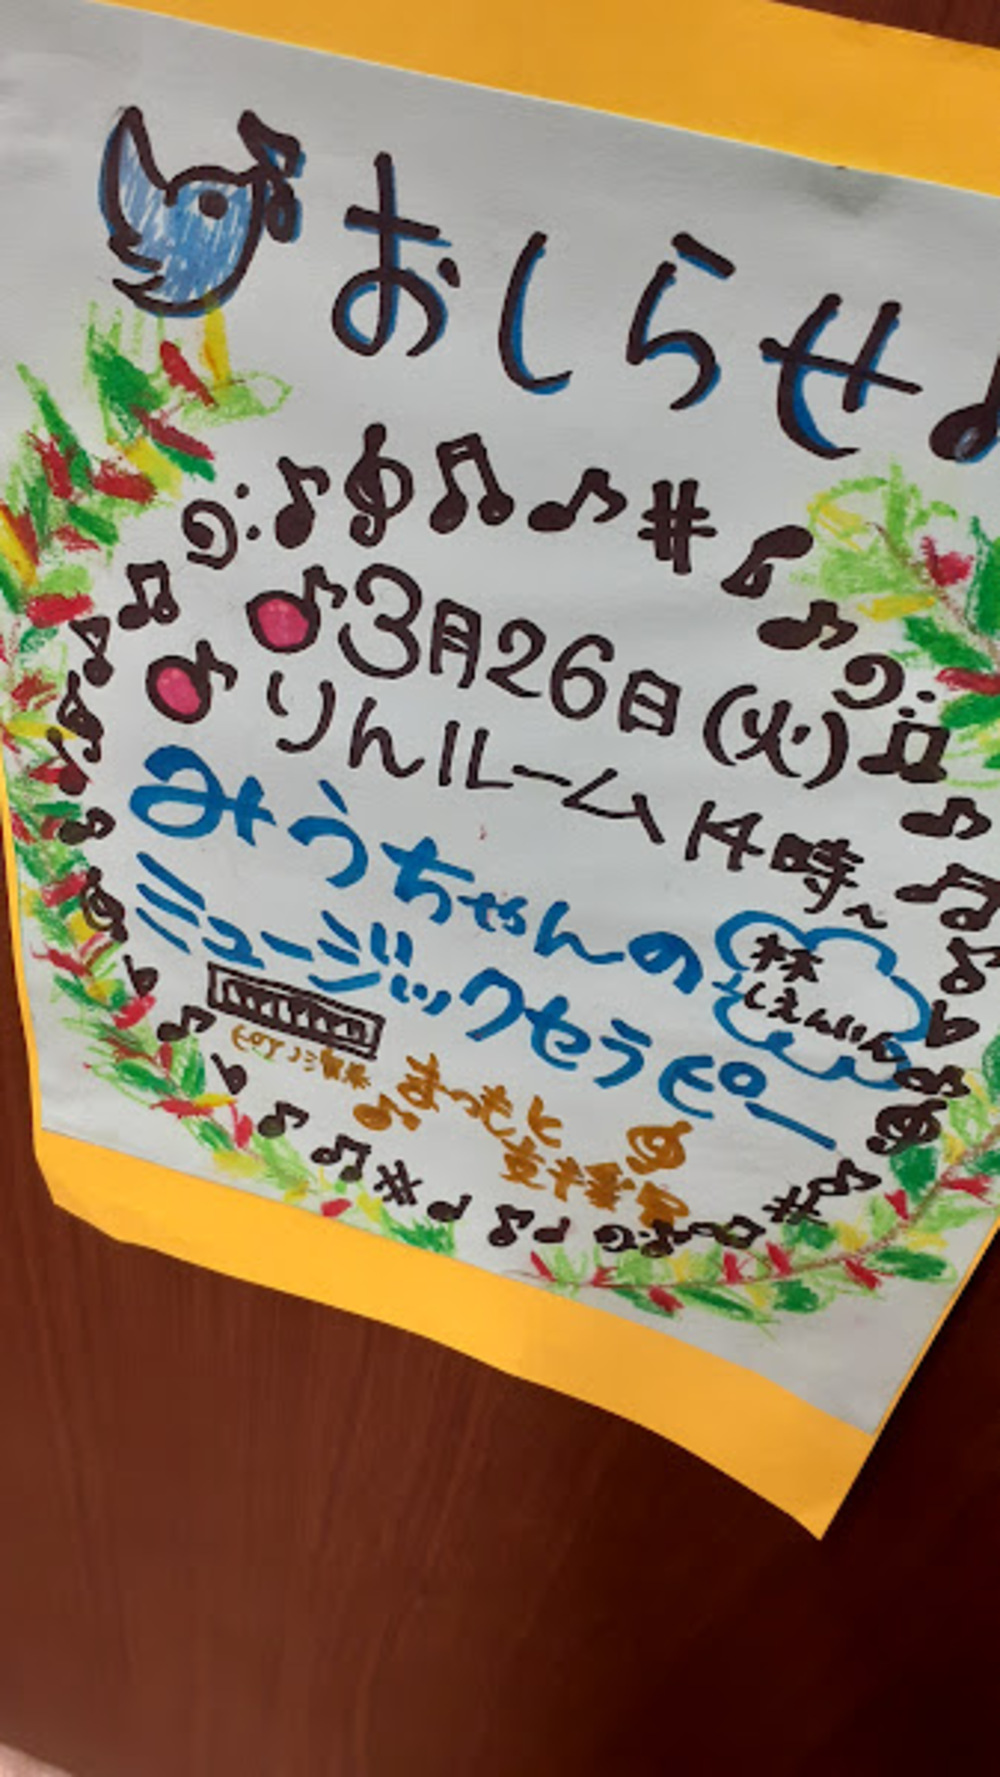 おしらせ♪
3月26日(火)
りんルーム 14時~
みうちゃんの
ミュージックセラピー
林
しえんいん
ピアノ演奏
まつもと
支援員